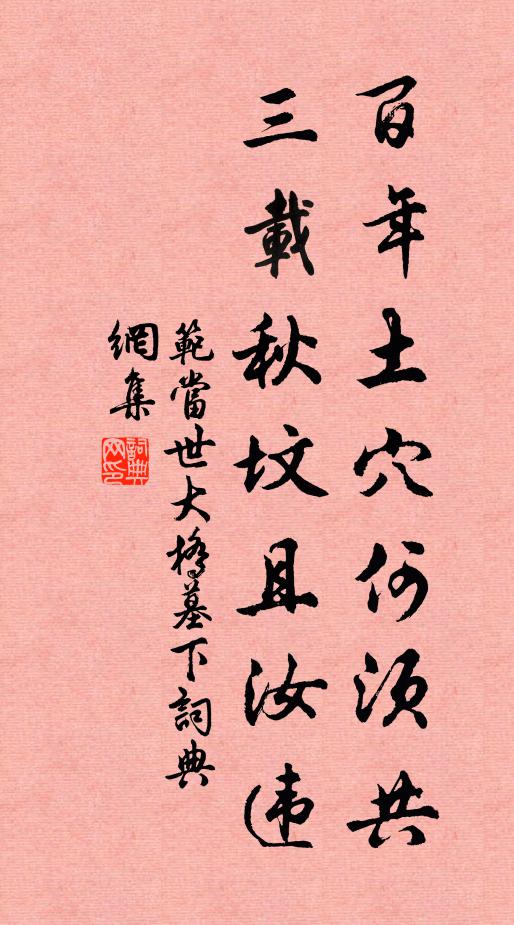 百年土穴何須共
三載秋坟且汝违
範當世大橋墓下詞典
網集
詞典網印